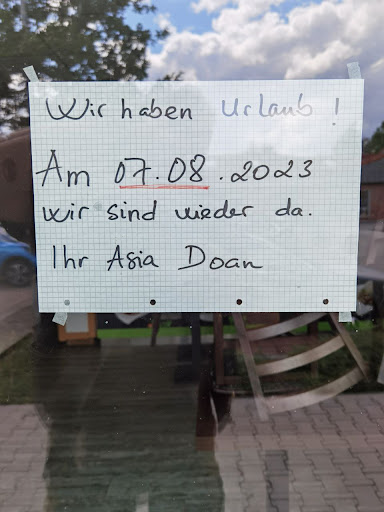 Wir haben Urlaub!
Am 07.08.2023
wir sind wieder da.
Ihr Asia Doan